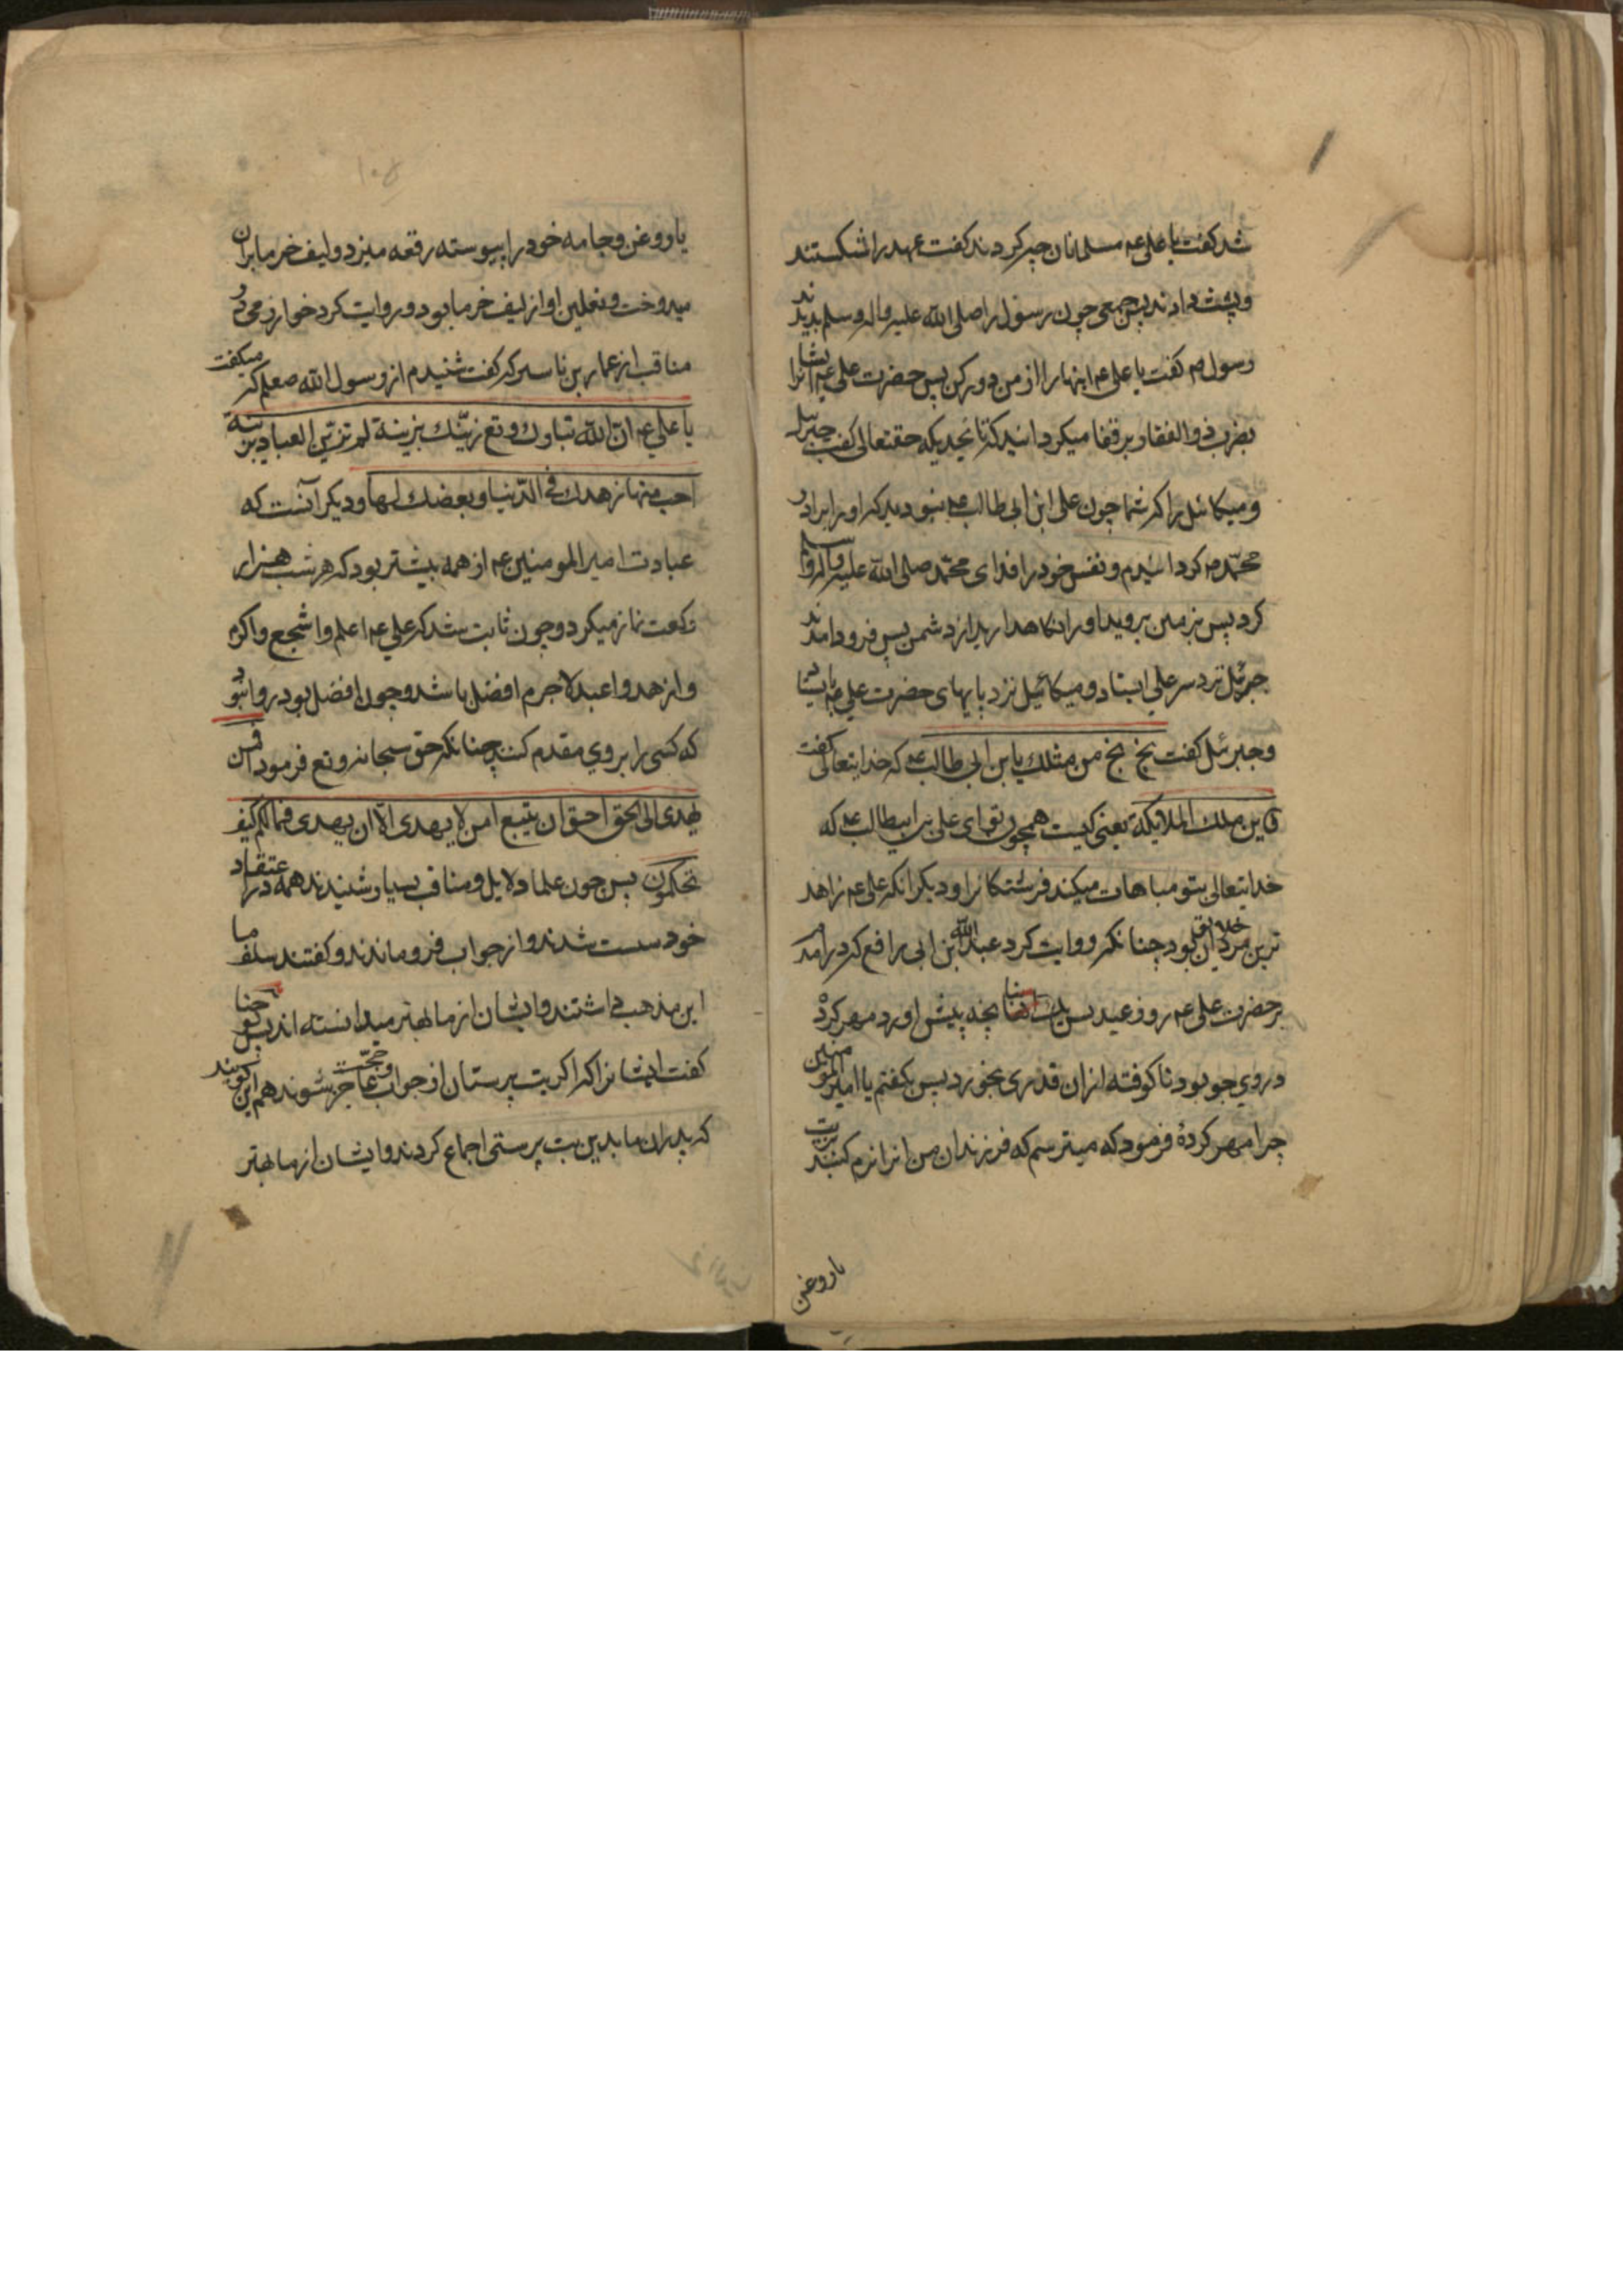 شد کفت یا علی عم مسلمانان چه کردند کفت عهد را شکستند
و پشت دادند پس جمعی چون رسول را صلی الله علیه و اله و سلم بدیدند
رسول ص کفت یا علی عم اینها را از من دور کن پس حضرت علی عم ایشانرا
بضرب ذوالفقار بر قفا میکردانید که تا بحدیکه حقتعالی کفت جبرئیل
و میکائیل را که شما چون علی ابن ابی طالب عم نبودید که او را برادر
محمد ص کردانیدم و نفس خود را فدای محمد صلی الله علیه و اله و سلم
کرد پس بزمین بروید او را نکاهدارید از دشمن پس فرود امدند
جبرئیل نزد سر علی ایستاد و میکائیل نزد پایهای حضرت علی عم بایستاد
و جبرئیل کفت بخ بخ من مثلک یا بن ابی طالب عم که خدایتعالی کفت
بک الملایکة یعنی کیست همچون تو ای علی بن ابیطالب عم که
خدایتعالی بتو مباهات میکند فرشتکانرا و دیکر انکه علی عم زاهد
ترین مردان خلایق بود چنانکه روایت کرد عبدالله بن ابی رافع که در امد
بر حضرت علی عم روز عید پس پیش اورد مهر کرده
در وی جو بود نا کوفته از ان قدری بخورد پس بکفتم یا امیر المومنین
چرا مهر کردهٔ فرمود که میترسم که فرزندان من انرا نرم کنند بزیت
یا روغن
یا روغن و جامه خود را پیوسته رقعه میزد و لیف خرما بران
میدوخت و نعلین او از لیف خرما بود و روایت کرد خوارزمی در
مناقب از عمار بن یاسر که کفت شنیدم از رسول الله صعلم که میکفت
یا علی عم ان الله تبارک و تع زینک بزینة لم تزین العباد بزینة
احب منها زهدک فی الدنیا و بعضک لها و دیکر آنست که
عبادت امیر المومنین عم از همه بیشتر بود که هر شب هزار
رکعت نماز میکرد و چون ثابت شد که علی عم اعلم و اشجع و اکرم
و ازهد و اعبد لا جرم افضل باشد و چون افضل بود روا نبود
که کسی را بر وی مقدم کنند چنانکه حق سبحانه و تع فرمود افمن
یهدی الی الحق احق ان یتبع امن لا یهدی الا ان یهدی فما لکم کیف
تحکمون پس چون علما دلایل و مناقب بسیار شنیدند همه در اعتقاد
خود سست شدند و از جواب فرو ماندند و کفتند سلف ما
این مذهب داشتند و ایشان از ما بهتر میدانسته اند یوحنا
کفت ایشانرا که اکر بت پرستان از جواب و حجت عاجز شوند هم این کویند
که پدران ما بدین بت پرستی اجماع کردند و ایشان از ما بهتر